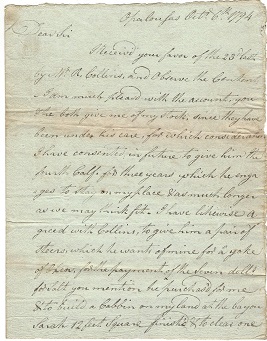 Opelousas Octr. 6th. 1794
Dear Sir
Received your favor of the 23d
by Mr. R. Collins, and Observe the Contents
I am much pleased with the account, you
& he both give me of my Stock, since they have
been under his care, for which consideration
I have consented in future to give him the
fourth Calf, for three years which he enga
ges to stay on my place & as much longer
as we may think fit. I have likewise a
greed with Collins, to give him a pair of
Steers, which he wants of mine for a yoke
of Oxen, for the payment of the Seven dolls.
for you mention, he purchased for me
& to build a Cabbin on my land at the bayou
Sarah 12 feet Square finished & to clear one